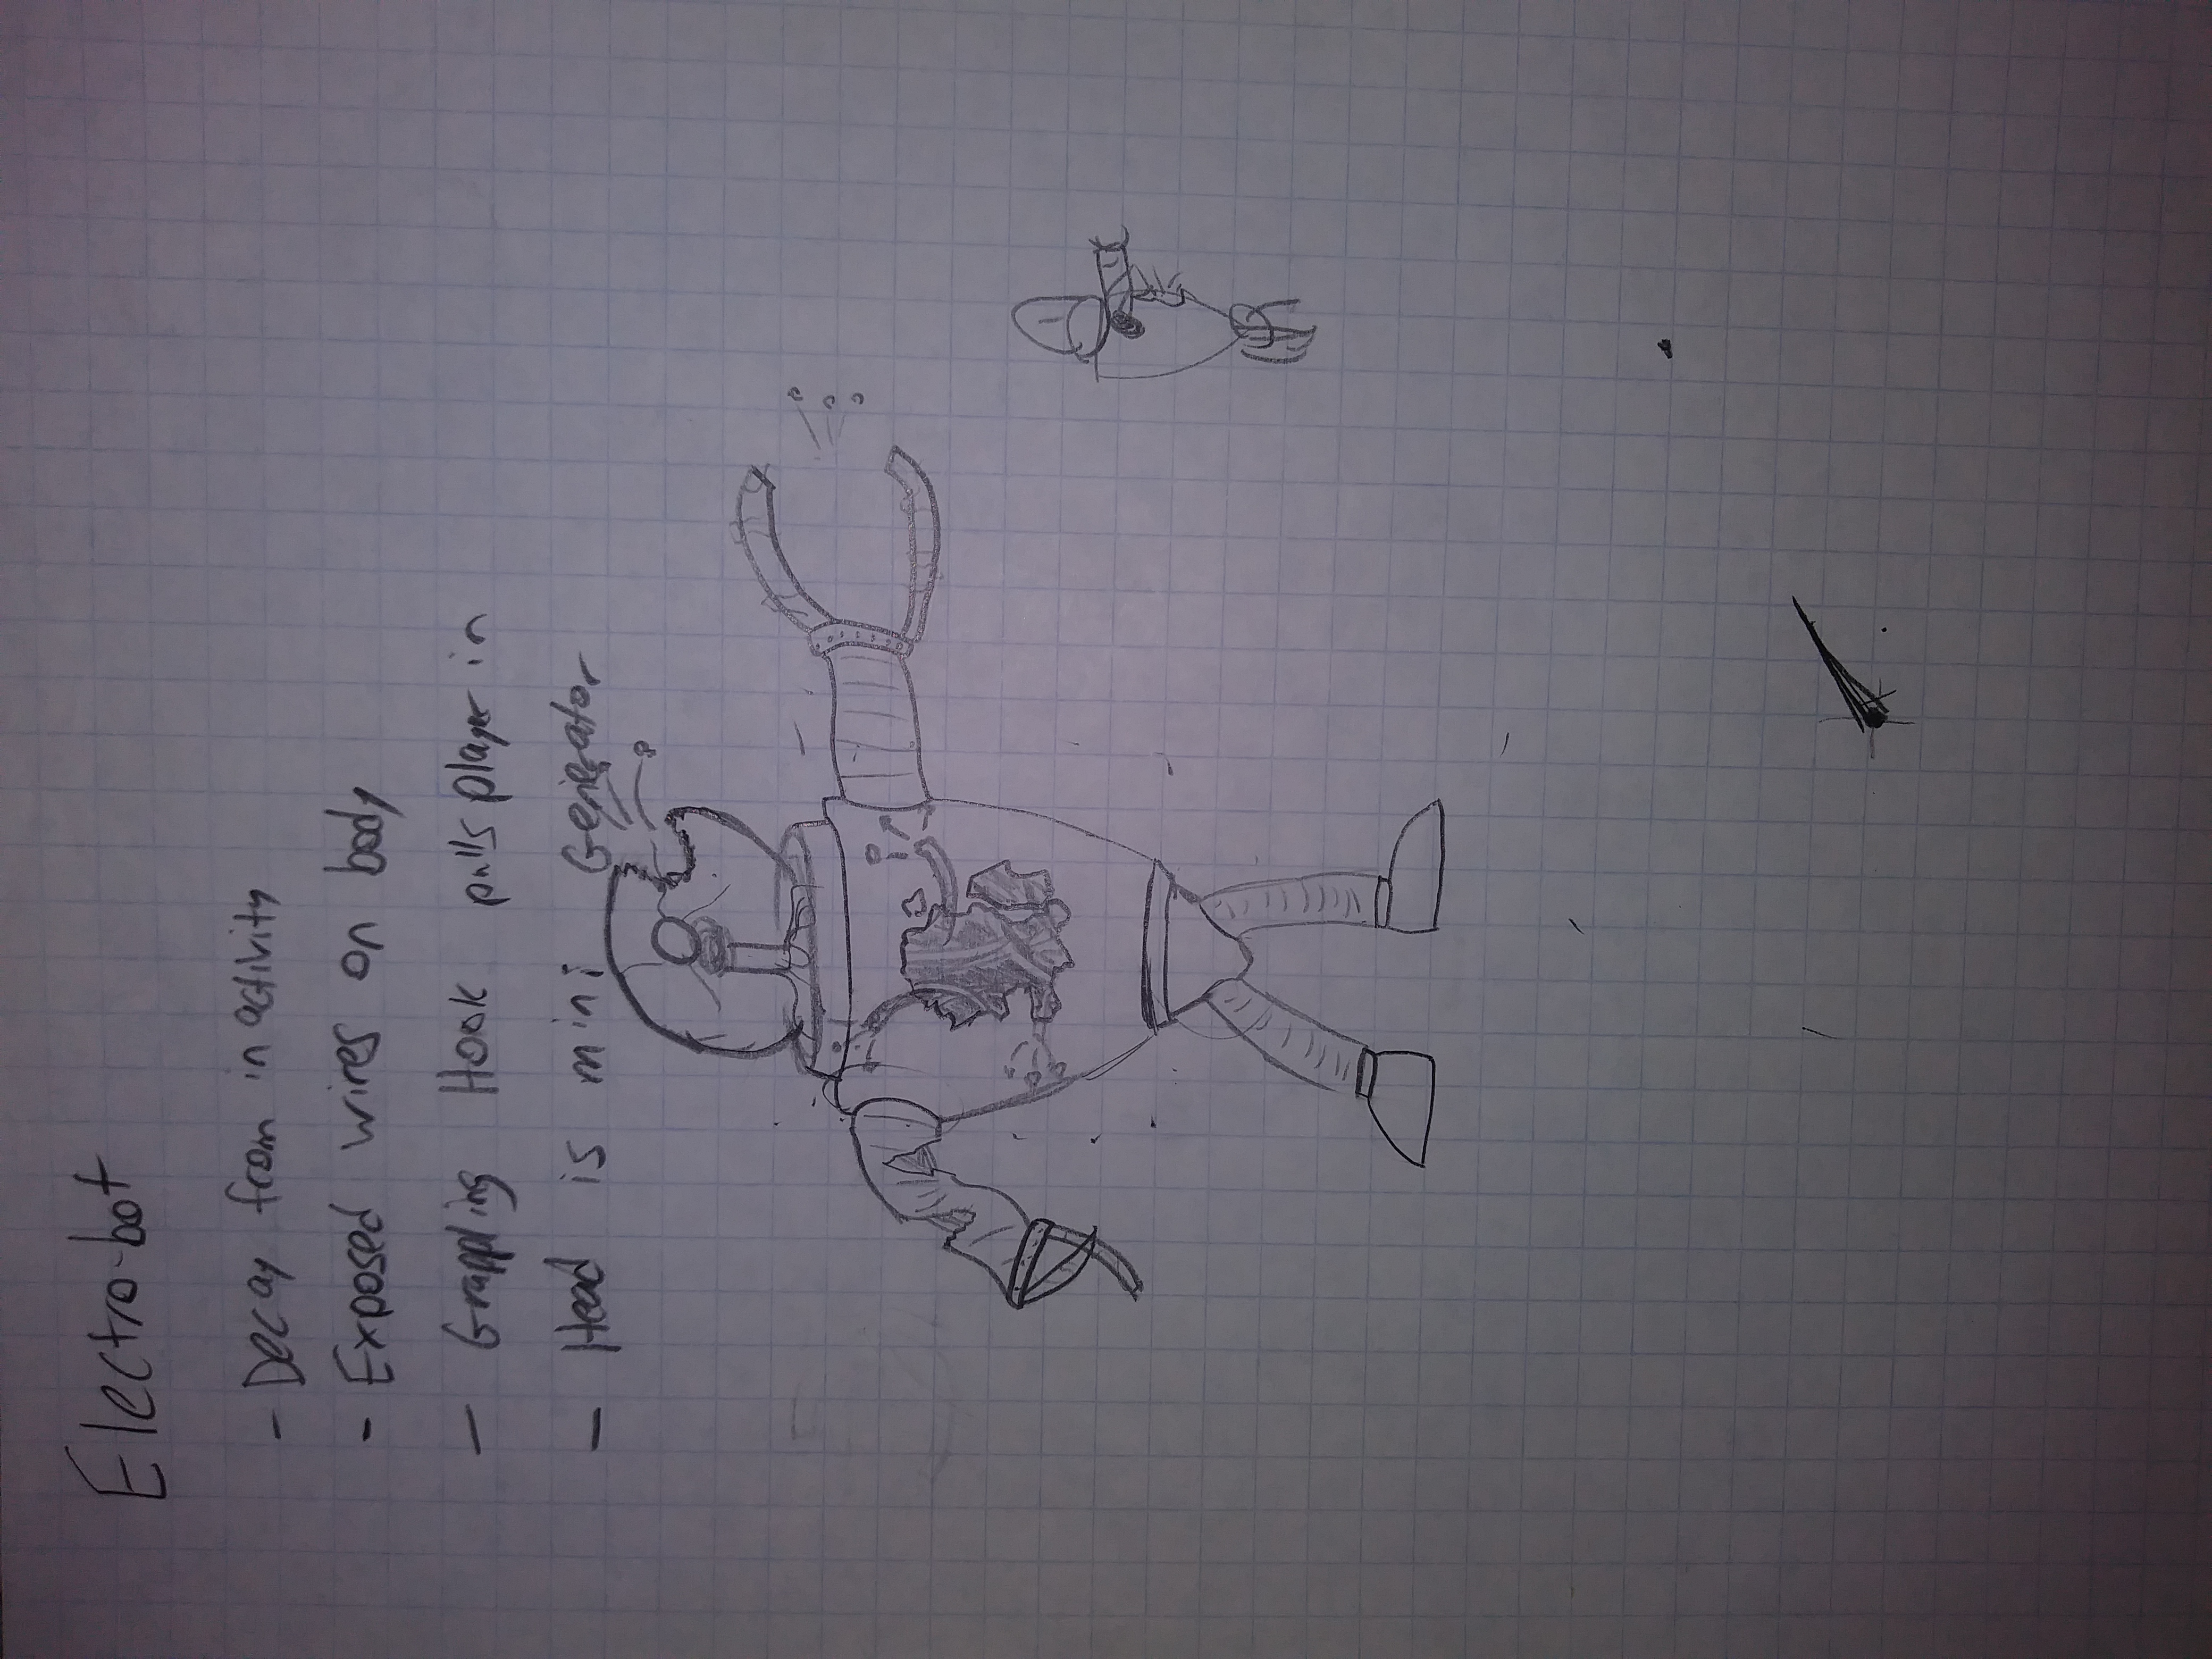 Electro-bot
- Decay from inactivity
- Exposed wires on body
- Grappling Hook pulls player in
- Head is mini Generator